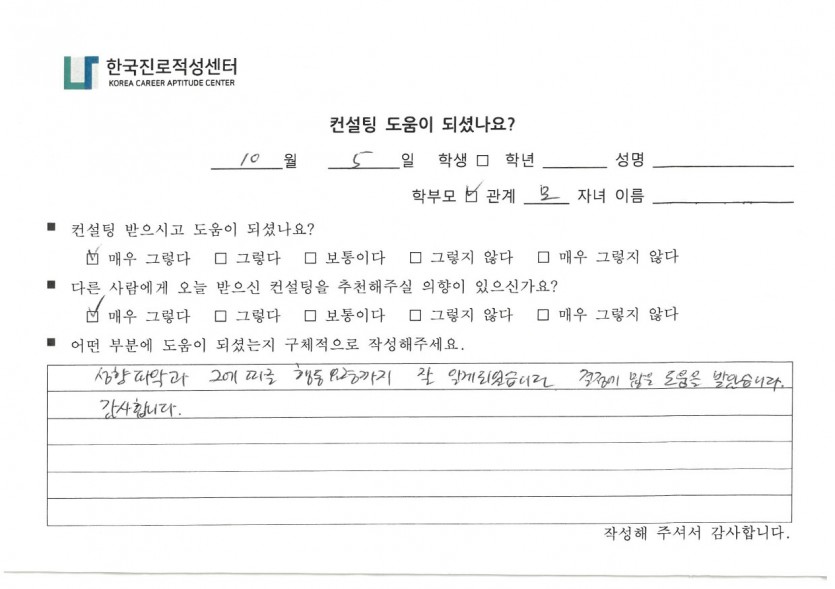 한국진로적성센터
KOREA CAREER APTITUDE CENTER
컨설팅 도움이 되셨나요?
10 월 5 일 학생 □ 학년 성명
학부모 ☑ 관계 모 자녀 이름
■ 컨설팅 받으시고 도움이 되셨나요?
☑ 매우 그렇다 □ 그렇다 □ 보통이다 □ 그렇지 않다 □ 매우 그렇지 않다
■ 다른 사람에게 오늘 받으신 컨설팅을 추천해주실 의향이 있으신가요?
☑ 매우 그렇다 □ 그렇다 □ 보통이다 □ 그렇지 않다 □ 매우 그렇지 않다
■ 어떤 부분에 도움이 되셨는지 구체적으로 작성해주세요.
성향파악과 그에 따른 행동 까지 잘 알게되었습니다. 결정에 많은 도움을 받았습니다.
감사합니다.
작성해 주셔서 감사합니다.